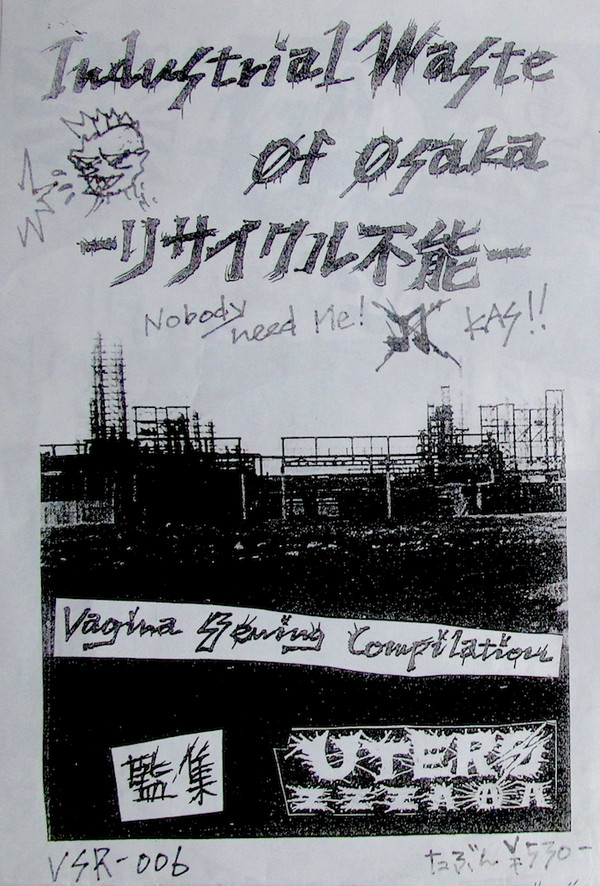 Industrial Waste
Of Osaka
ーリサイクル不能ー
Nobody need Me! KAS!!
Vagina Sewing Compilation
監集
UTERUS
VSR-006
たぶん ¥530-